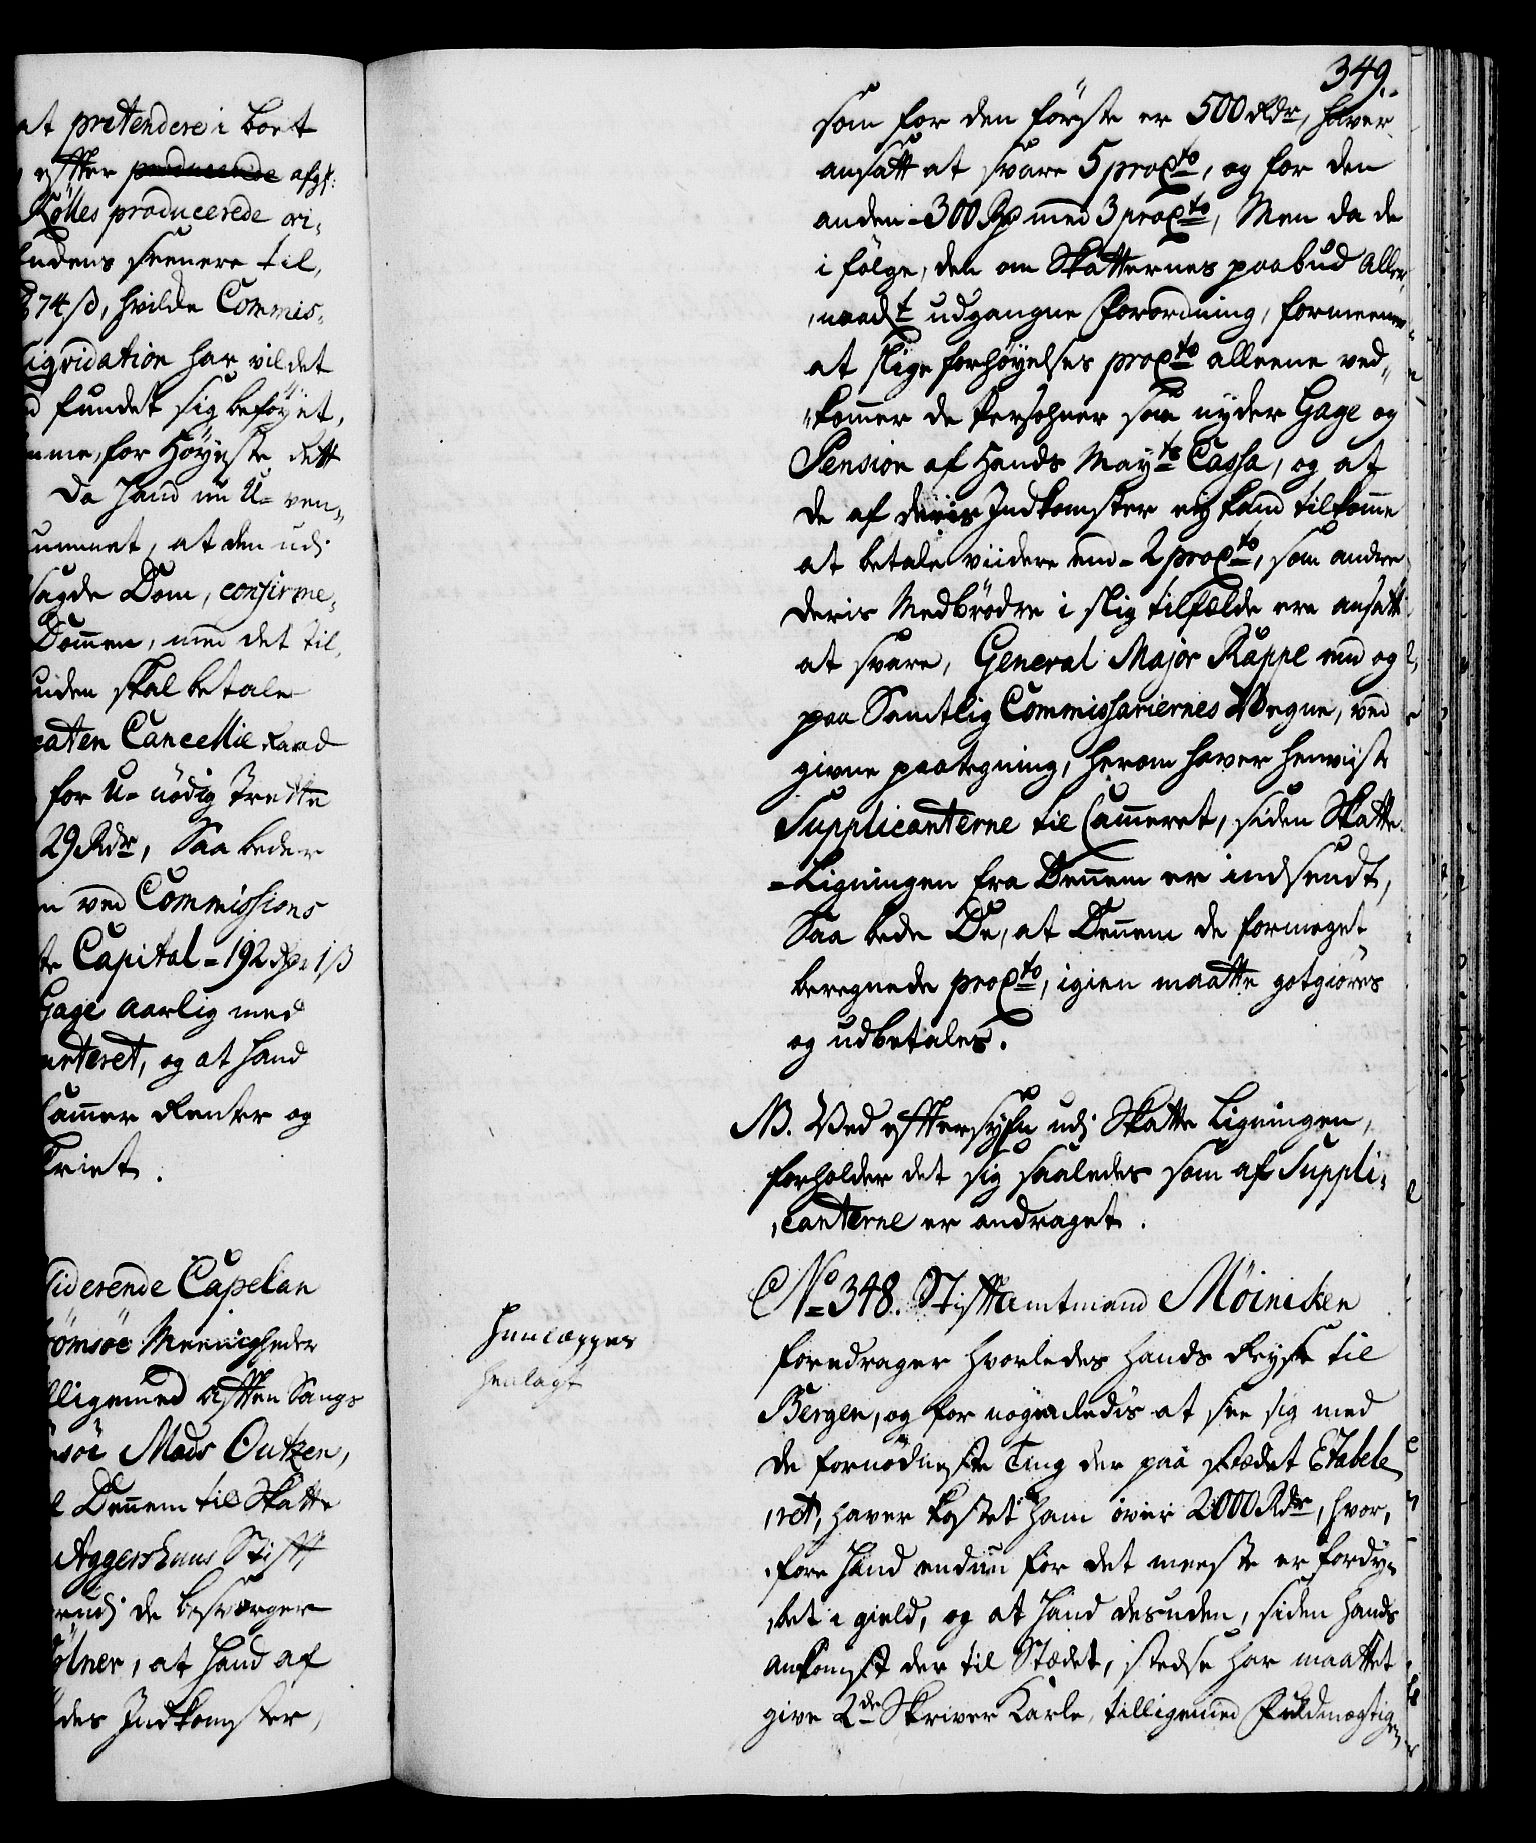 at prætendere i boet
effter producerede afgl:
Kölles producerede ori,
endens seenere til,
74 ß, hvilke Commis,
liqvidation har vildet
fundet sig beföyet,
mme, for Höyeste Rett
Da hand nu U-ven,,
ummet, at den udj
sagde Dom, confirme,
Dommen, med det til,
uiden skal betale
caten Cancellie Raad
for U-nödig Trette
29 Rdr, Saa beder
ved Commissions
te Capital - 192 Rdr 1 ß
Gage aarlig med
arteret, og at hand
Cammer Renter og
Triet.
siderende Capelan
ömsöe Meenigheder
lligemed Afften Sangs
msöe Mads Outzen,
Dennem til Skatte
Aggershuus Stifft
erudj de besværger
ölner, at hand af
des Indkomster,
349.
som for den förste er 500 Rdr, haver
ansatt at svare 5 proCto, og for den
anden - 300 Rdr med 3 proCto, Men da de
i fölge, den om Skatternes paabud aller,
,naadt udgangne Forordning, formeener
at slige forhöyelses proCto alleene ved,,
,,kommer de Persohner som nyder Gage og
Pension af Hands Mayts Cassa, og at
de af deris Indkomster ey kand tilkomme
at betale viidere end - 2 proCto, som andre
deris Medbrödre i slig tilfælde ere ansatt
at svare, General Major Rappe end og
paa Samtlig Commissariernes Vegne, ved
givne paategning, herom haver henviist
Supplicanterne til Cammeret, siden Skatte
-Ligningen fra Dennem er indsendt,
Saa bede De, at Dennem de formeget
beregnede proCto, igien maatte gotgiöres
og udbetales.
NB. Ved efftersyfn udj Skatte Ligningen,
forholder det sig saaledes som af Suppli,
,canterne er andraget.
No 348. Stifftamtmand Möinicken
foredrager hvorledes hands Reyse til
Bergen, og for nogenledis at see sig med
de fornödneste Ting der paa stædet Etable
,ret, haver kostet ham over 2000 Rdr, hvor,
,fore hand endnu for det meeste er fordy,
,bet i gield, og at hand desuden, siden hands
ankomst der til Stædet, stedse har maattet
give 2de Skriver Karle, tilligemed Fuldmægtigen
Henlægges
henlagt